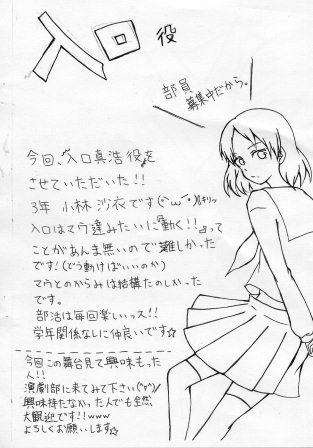 入口役
部員
募集中だから。
今回、入口真浩役を
させていただいた!!
3年 小林 沙衣です(*´ω`*)(キリッ
入口はマウ達みたいに動く!!って
ことがあんま無いので難しかった
です!(どう動けばいいのか)
マウとのからみは結構たのしかった
です。
部活は毎回楽しいっス!!
学年関係なしに仲良いです☆
今回この舞台見て興味もった
人!!
演劇部に来てみて下さい(*°∀°)/
興味持たなかった人でも全然
大歓迎です!!www
よろしくお願いします☆